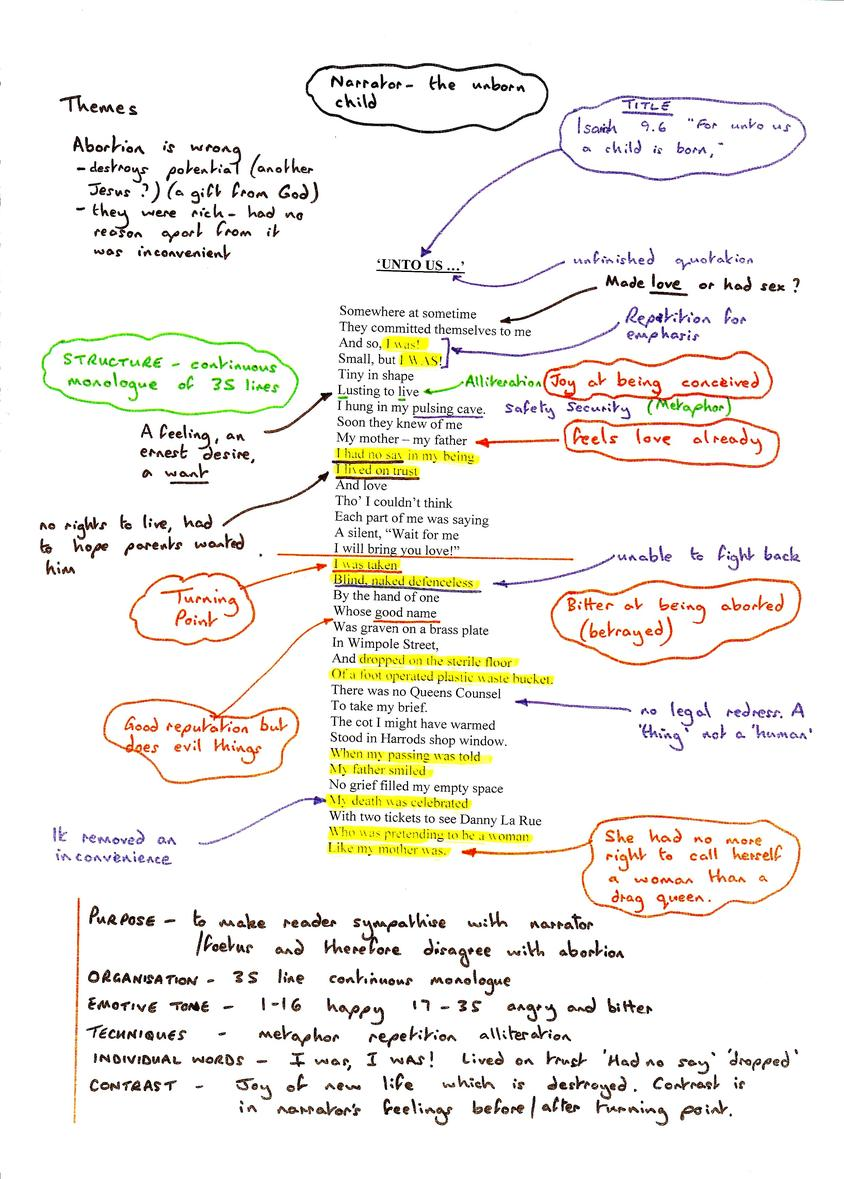 Narrator- the unborn
child
Themes
TITLE
Isaiah 9.6 "For unto us
a child is born,"
Abortion is wrong
- destroys potential (another
Jesus?) (a gift from God)
- they were rich - had no
reason apart from it
was inconvenient
'UNTO US ...'
unfinished quotation
Made love or had sex?
Somewhere at sometime
They committed themselves to me
And so, I was!
Small, but I WAS!
Tiny in shape
Lusting to live
I hung in my pulsing cave.
Soon they knew of me
My mother – my father
I had no say in my being
I lived on trust
And love
Tho' I couldn't think
Each part of me was saying
A silent, "Wait for me
I will bring you love!"
I was taken
Blind, naked defenceless
By the hand of one
Whose good name
Was graven on a brass plate
In Wimpole Street,
And dropped on the sterile floor
Of a foot operated plastic waste bucket.
There was no Queens Counsel
To take my brief.
The cot I might have warmed
Stood in Harrods shop window.
When my passing was told
My father smiled
No grief filled my empty space
My death was celebrated
With two tickets to see Danny La Rue
Who was pretending to be a woman
Like my mother was.
Repetition for
emphasis
STRUCTURE - continuous
monologue of 35 lines
Alliteration
Joy at being conceived
safety security (Metaphor)
feels love already
A feeling, an
ernest desire,
a want
no rights to live, had
to hope parents wanted
him
unable to fight back
Turning
Point
Bitter at being aborted
(betrayed)
Good reputation but
does evil things
no legal redress. A
'thing' not a 'human'
It removed an
inconvenience
She had no more
right to call herself
a woman than a
drag queen.
PURPOSE - to make reader sympathise with narrator
/foetus and therefore disagree with abortion
ORGANISATION - 35 line continuous monologue
EMOTIVE TONE - 1-16 happy 17-35 angry and bitter
TECHNIQUES - metaphor repetition alliteration
INDIVIDUAL WORDS - I was, I was! Lived on trust 'Had no say' 'dropped'
CONTRAST - Joy of new life which is destroyed. Contrast is
in narrator's feelings before/after turning point.